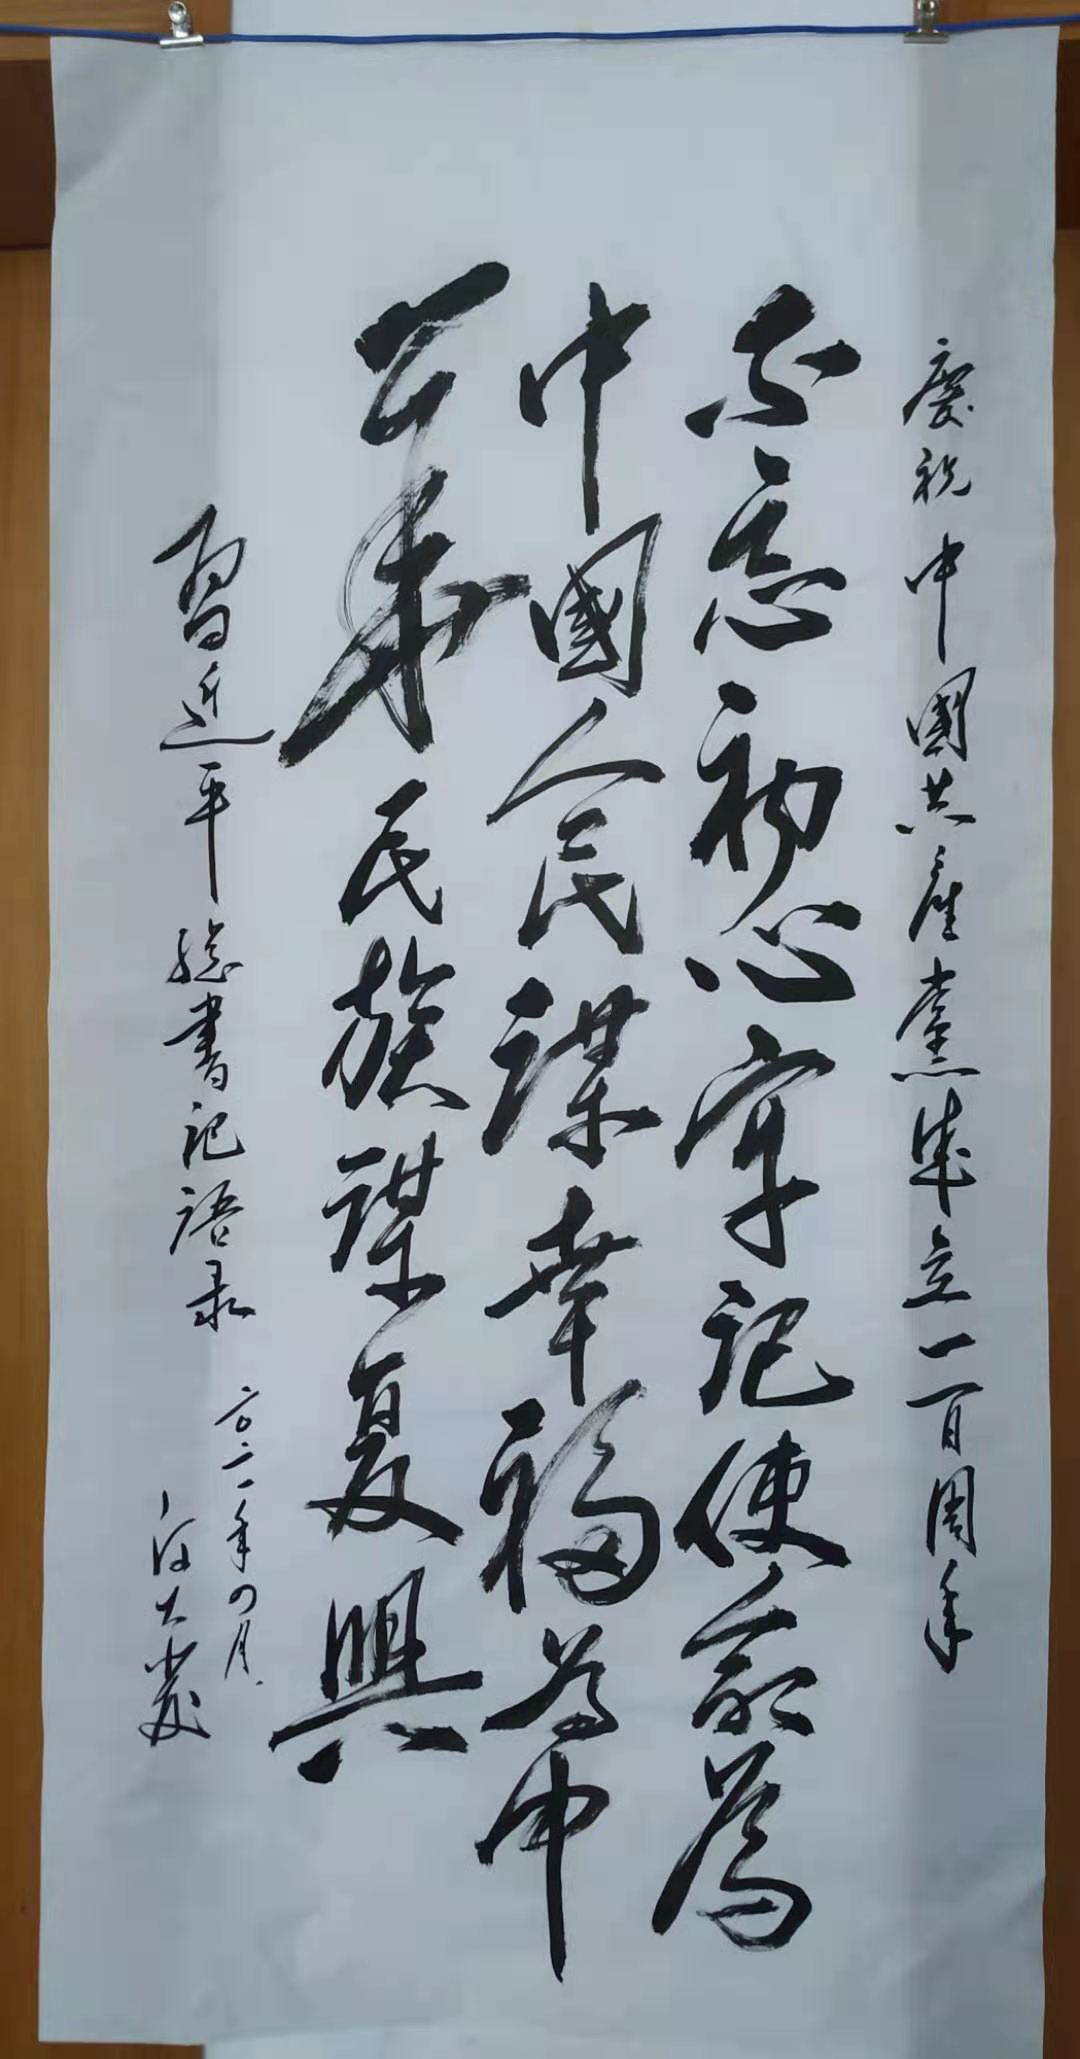 慶祝中國共產黨成立一百周年
不忘初心牢記使命為
中國人民謀幸福為中
華民族謀复興
習近平總書記語录
二〇二一年四月